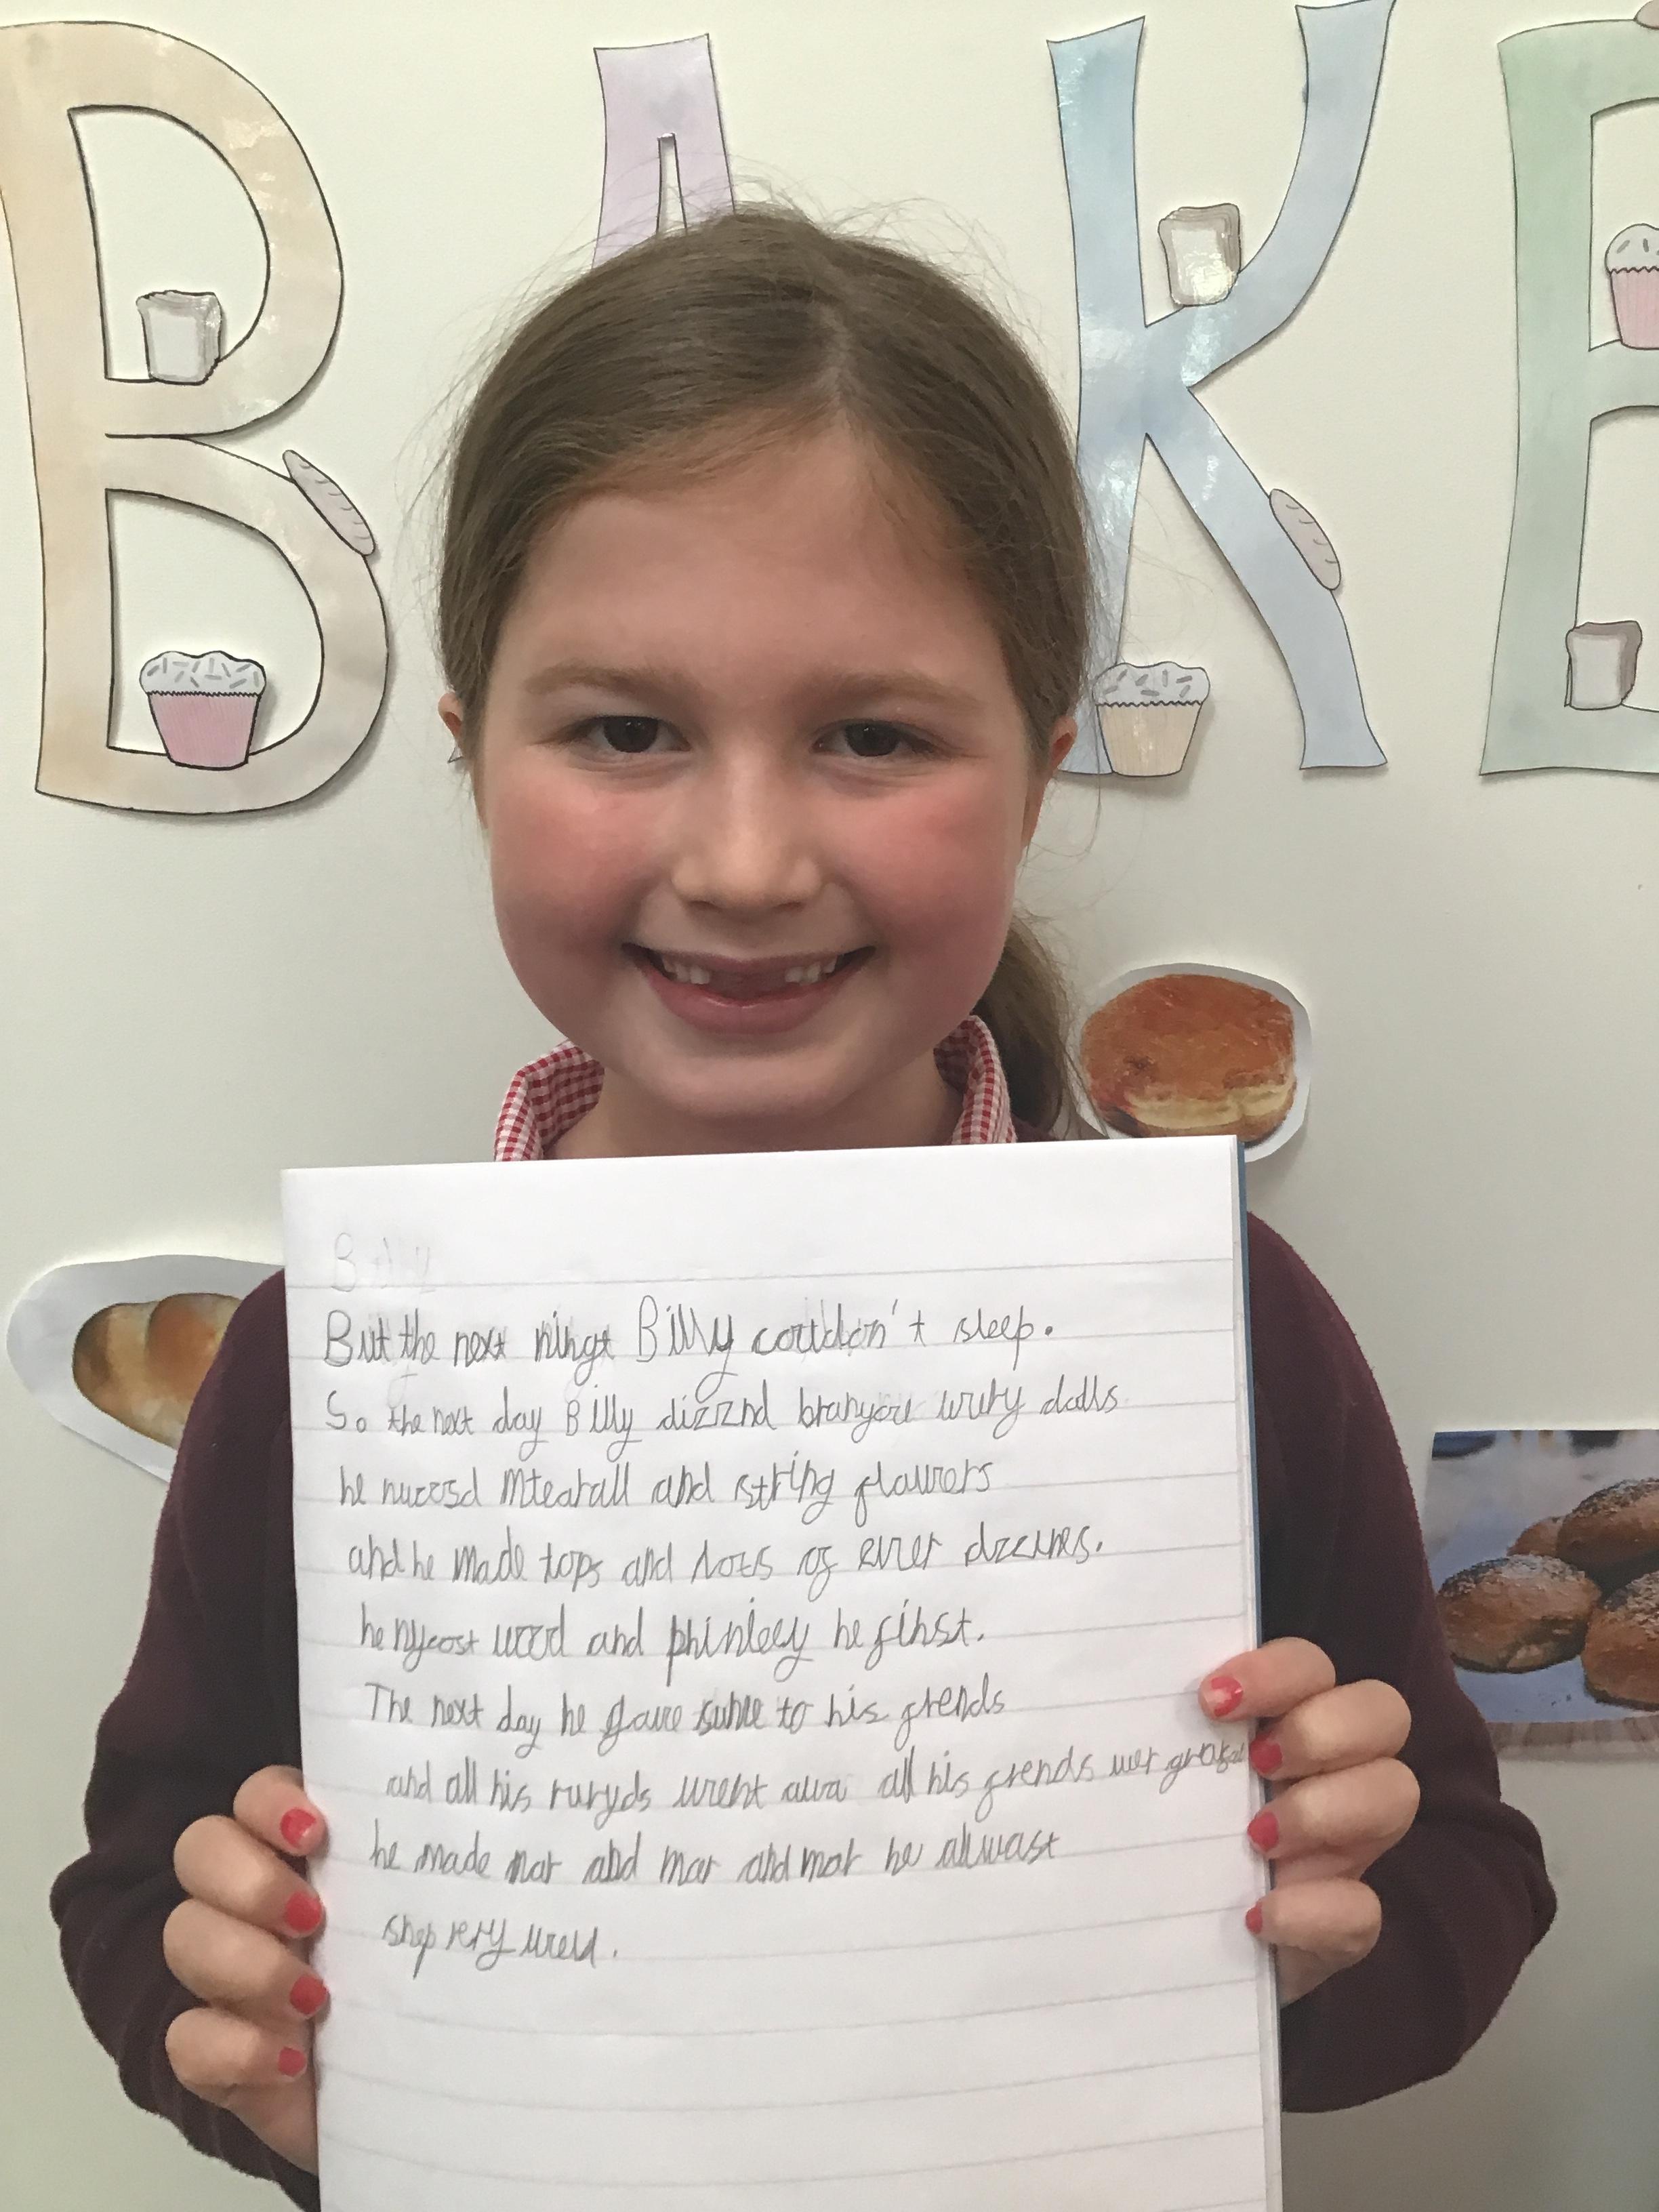 B A K E
But the next ningt Billy couldon't sleep.
So the next day Billy dizznd branyou wury dolls
he nucosd mtearall and string flowers
and he made tops and lots of ever dreenes.
he nycost wood and phinleey he finst.
The next day he gave sume to his frends
and all his ruryds went awa all his frends wer
he made mor and mor and mor he alwast
shep very wrell.